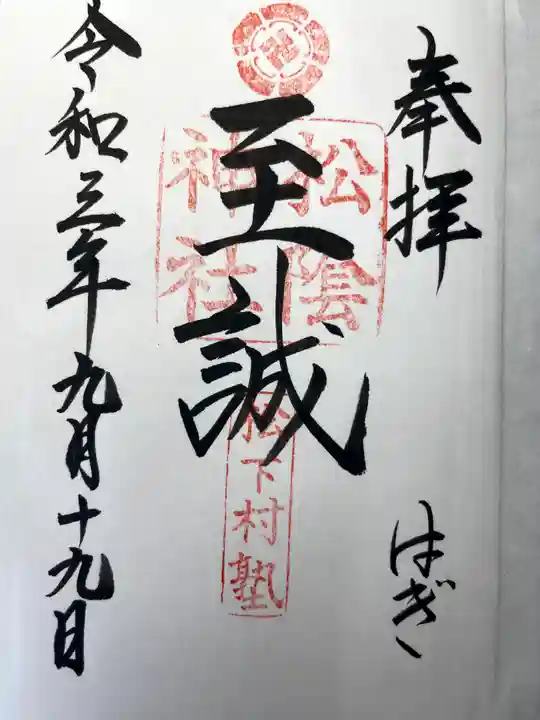 奉拝
はぎ
至誠
松陰
神社
松下村塾
令和三年九月十九日